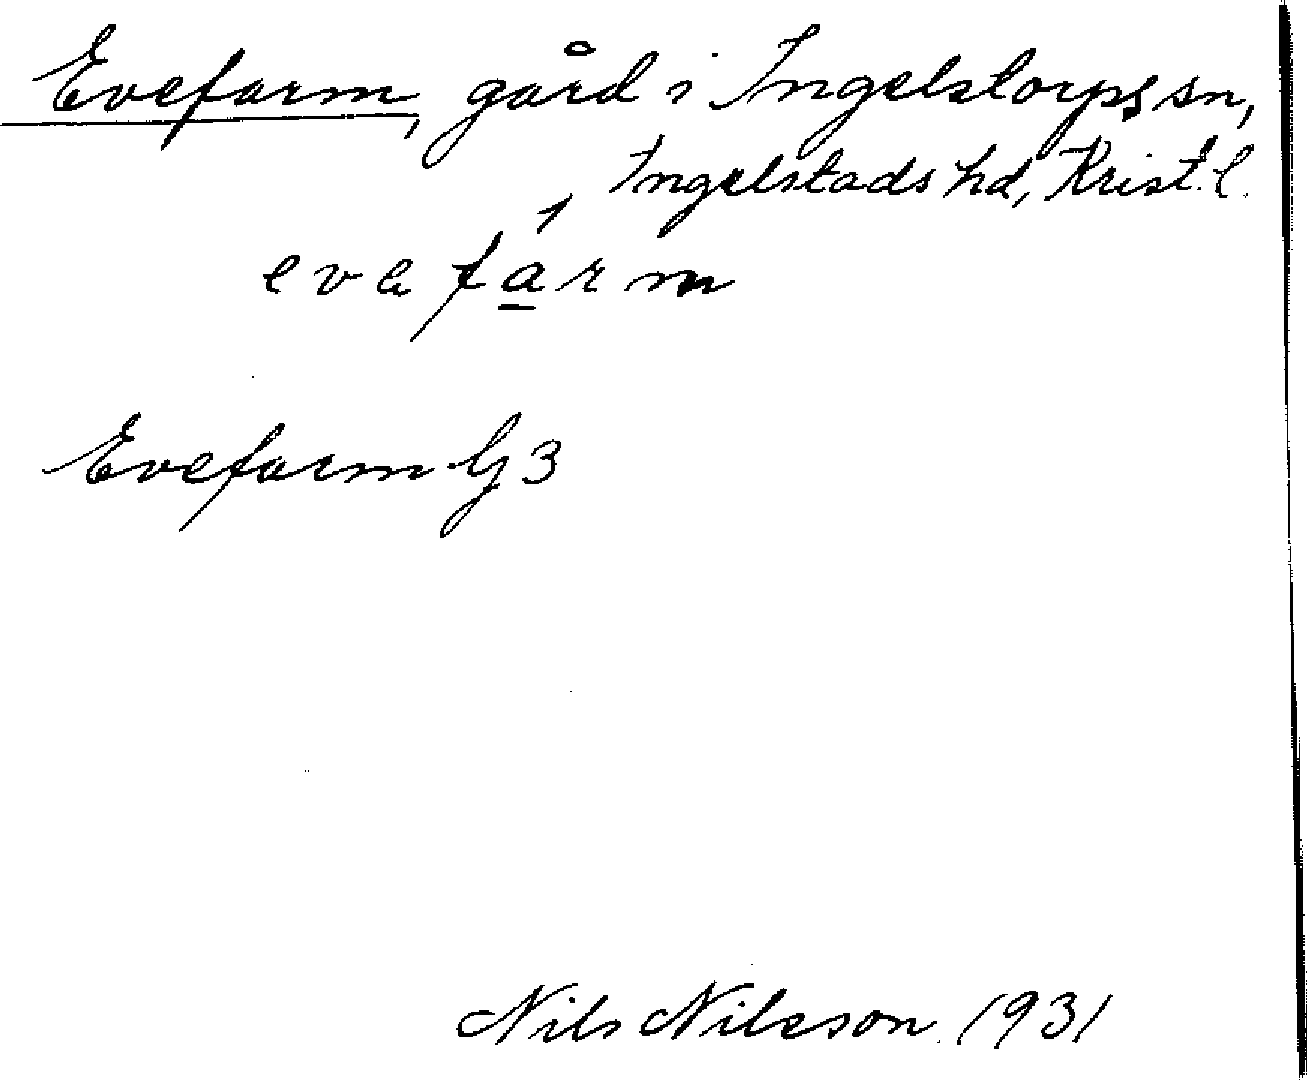 Evefarm, gård i Ingelstorps sn,
Ingelstads hd, Krist. l.
evefa̱rm
Evefarm G 3
Nils Nilsson 1931